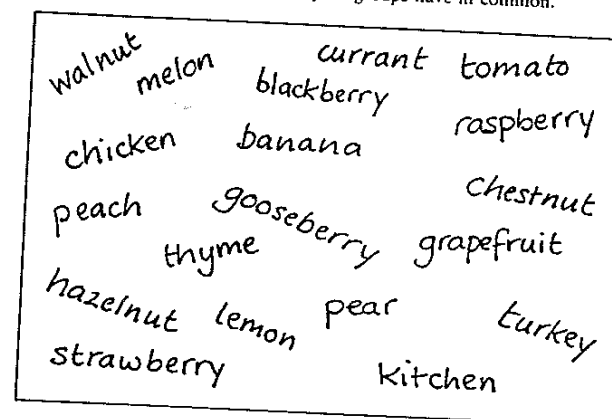 have in common.
walnut
melon
currant
tomato
blackberry
raspberry
chicken
banana
chestnut
peach
gooseberry
thyme
grapefruit
hazelnut
lemon
pear
turkey
strawberry
kitchen